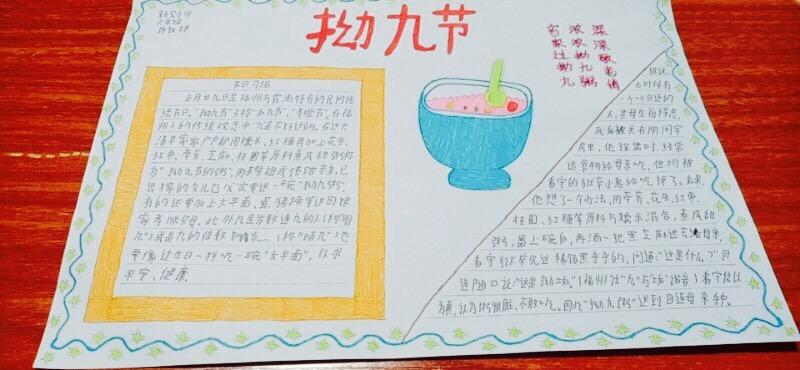 拗九节
深深敬老情
浓浓拗九粥
家家过拗九
节日习俗
正月廿九日是福州与
特有的民间传统
节日，"拗九节"又称"后九节"、"孝顺节"。在福
州人的传统观念中"九"是不好的。在这天
清早家家户户都用糯米、红糖再加上花生、
红枣、荸荠、芝麻、桂圆等原料煮成甜粥称
为"拗九节的粥"，用来祭祖或馈赠亲友。已
出嫁的女儿也必定要送一碗"拗九粥"，
有的还要加上太平面、蛋、猪蹄等送回娘
家孝顺父母。此外凡是岁数逢九的人(称"明
九")或是九的倍数
(称"暗九")也
要像过生日一样吃一碗"太平面"，以求
平安、健康
据说
古时候有
一个目连的
人，其母生前
死后被关在阴间牢
房里，他探监时，经常
送食物给母亲吃，但均被
看守的狱卒小鬼给吃掉了。后来，
他想了一个办法，用荸荠、花生、红枣、
桂圆、红糖等原料与糯米混合，煮成甜
粥，盛上碗后，再洒一把黑芝麻送去给母亲，
看守狱卒见这
黑乎乎的，问道："这是什么？"目
连随口说："这是拗垢。"(福州话"九"与"垢"谐音)看守信以
为真，认为粥很脏，不敢吃。因此"拗九粥"送到目连母亲手